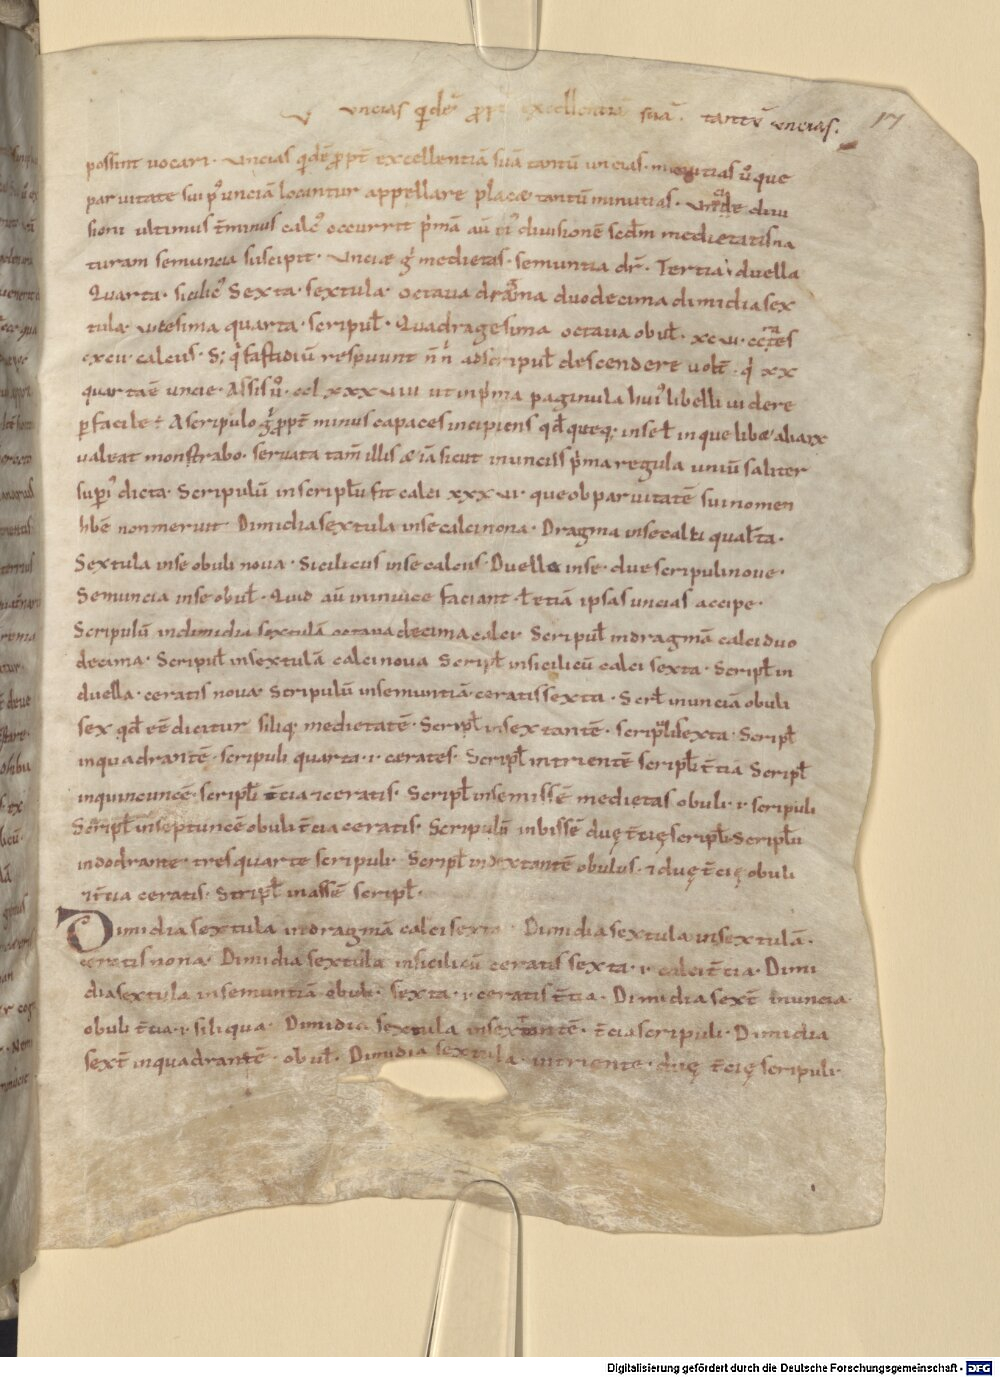 v uncias qͥdē ꝓpt excellentiā suā. tantū uncias. 17
possint uocari. Uncias qͥdē ꝓpt̄ excellentiā suā tantū uncias. minutias ů que
paruitate sui pͥ unciā locantur appellare placæ tantū minutias. Unde diui
sioni ultimus t̄minus calcꝰ occurrit pͥmā aū diuisionē scd̄m medietatis na
turam semuncia suscipit. Unciæ gͥ medietas. semuntia dr̄. Tertia duella
Quarta. sicilicꝰ Sexta. sextula. octaua dragma duodecima dimidia sex
tula. uicesima quarta. scripuł. Quadragesima octaua obuł. xcvi. cerates
cxcii. calcus. S; qͥ fastidiū respuunt ad scripuł descendere uolt̄. qͥ xx
quarta ē uncie. Assis ů. cclxxxviii ut in pͥma paginula huiꝰ libelli uidere
ꝑfacile ÷ A scripulo gͥ ꝓpt̄ minus capaces incipiens qd̄ queq; in se ł in que libæ aliarx
ualeat monstrabo. seruata tam̄ illis æiā sicut in unciis pͥma regula uniūsaliter
suꝑiꝰ dicta. Scripulū in scripłu fit calci xxxvi. que ob paruitatē sui nomen
hb̄e non meruit. Dimidia sextula in se calci nona. Dragma in se calci quar̄ta.
Sextula in se obuli noua. Sicilicus in se calcus. Duella in se. due scripuli noue.
Semuncia in se obuł. Quid aū in inuice faciant. ł etiā ipsas uncias accipe.
Scripulū in dimidia sextulā octaua decima calci Scripuł in dragmā calci duo
decima. Scripuł in sextulā calci noua Scripł in sicilicū calci sexta. Scripł in
duella. ceratis noua. Scripulū in semuntiā. ceratis sexta. Scrł in unciā obuli
sex qd̄ eē dicitur siliq; medietatē. Scripł in sextantē. scripłi sexta. Scripł
in quadrantē. scripuli quarta. ł. cerates. Scripł in trientē scripłi t̄cia Scripł
in quincuncē. scripłi t̄cia ⁊ ceratis. Scripł in semissē medietas obuli. ł. scripuli
Scripł in septuncē obuli t̄cia ceratis. Scripulū in bissē duę t̄cię scripłi. Scripłu
in dodrante. tres quarte scripuli. Scripł in dextantē obulus. ⁊ duę t̄cię obuli
⁊ t̄cia ceratis. Scripł in assē scripł.
Dimidia sextula in dragmā calci sexta. Dimidia sextula in sextulā.
ceratis nona. Dimidia sextula in sicilicū ceratis sexta. ł. calci t̄cia. Dimi
dia sextula in semuntiā obuli. sexta. ł. ceratis t̄cia. Dimidia sext̄ in uncia
obuli t̄cia. ł. siliqua. Dimidia sextula in sextantē. t̄cia scripuli. Dimidia
sext̄ in quadrantē. obuł. Dimidia sextula. in triente. duę t̄cię scripuli.
Digitalisierung gefördert durch die Deutsche Forschungsgemeinschaft - DFG